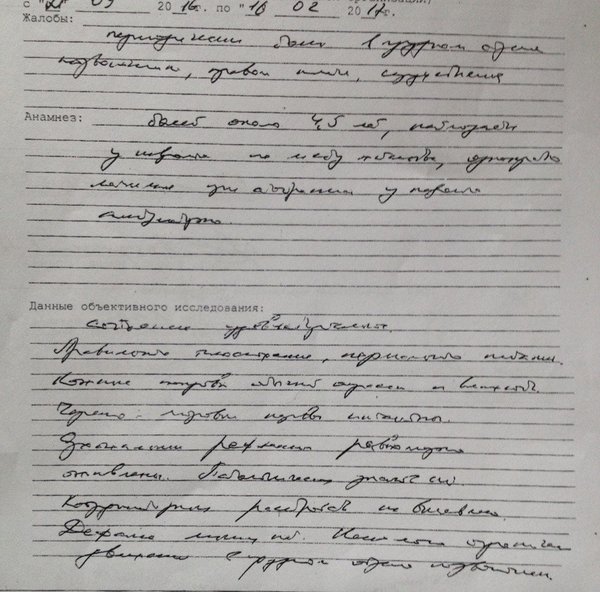 с "21" 09 2016г. по "16" 02 2017г.
Жалобы:
периодические боли в грудном отделе
позвоночника, правом плече,
Анамнез: болеет около 4,5 лет, наблюдается
у невролога по месту жительства,
лечился при обострении у невролога
амбулаторно.
Данные объективного исследования:
состояние удовлетворительное.
Правильного телосложения, нормального питания.
Кожные покровы обычной окраски и влажности.
Черепно-мозговые нервы интактны.
рефлексы равномерно
оживлены. Патологических знаков нет.
Координаторных расстройств не выявлено.
Дефанс мышц нет. Несколько ограничены
движения в грудном отделе позвоночника